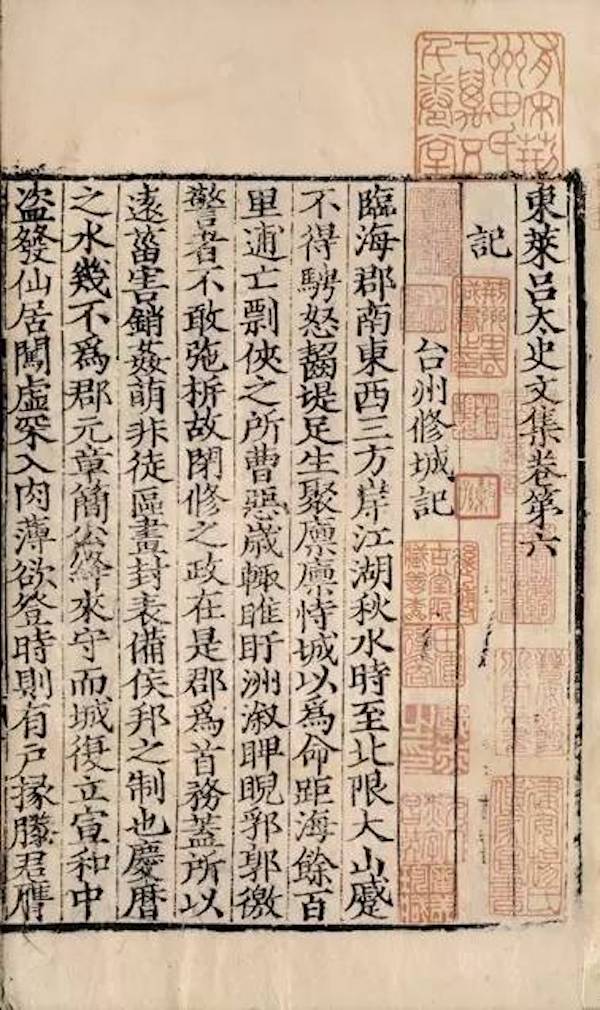 東萊呂太史文集卷第六
記
台州修城記
臨海郡南東西三方岸江湖秋水時至北限大山蹙
不得騁怒齧堤足生聚廩廩恃城以爲命距海餘百
里逋亡剽俠之所曹惡歲輙睢盱洲溆睥睨郛郭徼
警者不敢弛柝故閉修之政在是郡爲首務蓋所以
遠菑害銷姦萌非徒區畫封表備侯邦之制也慶曆
之水幾不爲郡元章簡公絳來守而城復立宣和中
盗發仙居闖虛罙入肉薄欲登時則有戶掾滕君膺